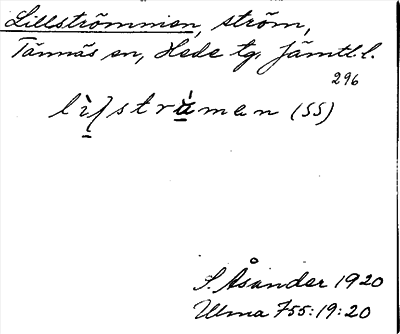 Lillströmmen, ström,
Tännäs sn, Hede tg. Jämtl.l.
296
(SS)
S. Åsander 1920
Ulma 755:19:20